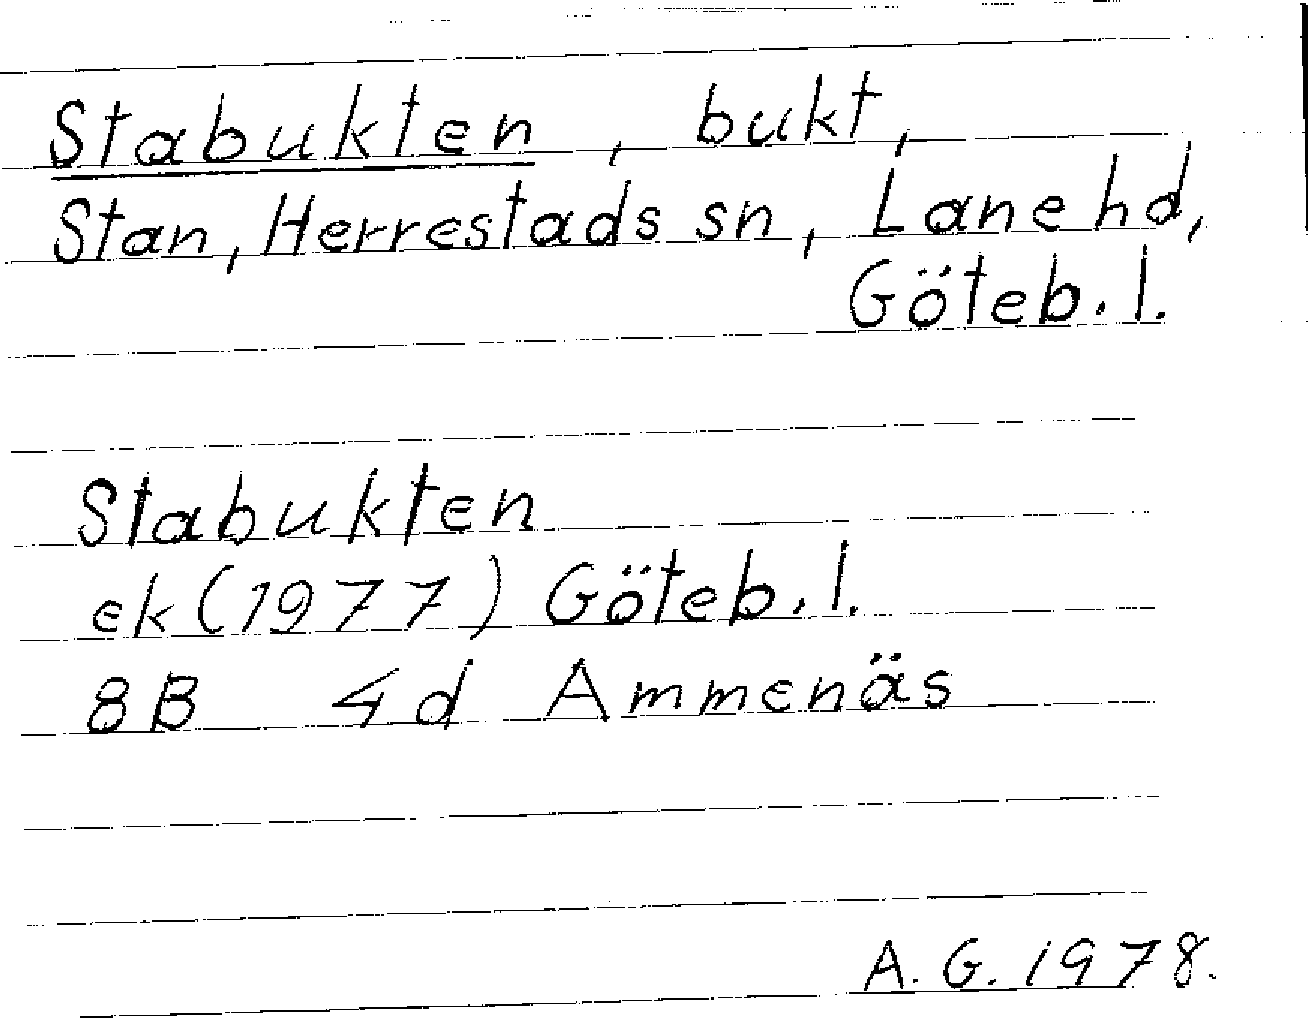 Stabukten, bukt,
Stan, Herrestads sn, Lane hd,
Göteb. l.
Stabukten
ek (1977) Göteb. l.
8B 4d Ammenäs
A. G. 1978.